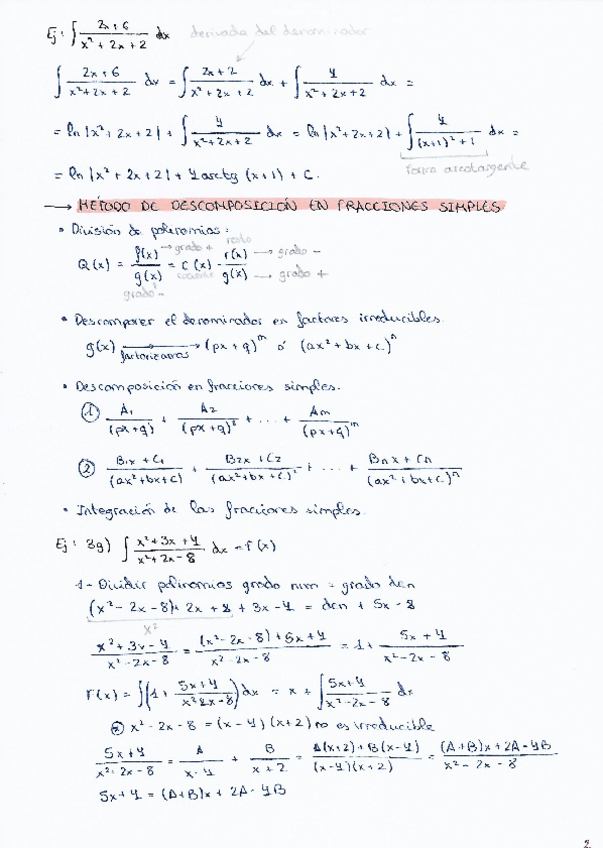 Ej: ∫ (2x+6)/(x²+2x+2) dx derivada del denominador
∫ (2x+6)/(x²+2x+2) dx = ∫ (2x+2)/(x²+2x+2) dx + ∫ 4/(x²+2x+2) dx =
= ln|x²+2x+2| + ∫ 4/(x²+2x+2) dx = ln|x²+2x+2| + ∫ 4/((x+1)²+1) dx =
forma arcotangente
= ln|x²+2x+2| + 4 arctg (x+1) + C.
→ MÉTODO DE DESCOMPOSICIÓN EN FRACCIONES SIMPLES
• División de polinomios:
Q(x) = f(x)/g(x) = C(x) - r(x)/g(x)
→ grado + resto → grado -
grado - cociente → grado +
• Descomponer el denominador en factores irreducibles.
g(x) → factorizamos (px+q)^m ó (ax²+bx+c)^n
• Descomposición en fracciones simples.
① A₁/(px+q) + A₂/(px+q)² + ... + Am/(px+q)^m
② (B₁x+C₁)/(ax²+bx+c) + (B₂x+C₂)/(ax²+bx+c)² + ... + (Bnx+Cn)/(ax²+bx+c)^n
• Integración de las fracciones simples.
Ej: 3g) ∫ (x²+3x+4)/(x²+2x-8) dx = F(x)
1- Dividir polinomios grado num = grado den
(x²-2x-8)+2x+8+3x-4 = den + 5x-8
x²
(x²+3x-4)/(x²-2x-8) = ((x²-2x-8)+5x+4)/(x²-2x-8) = 1 + (5x+4)/(x²-2x-8)
F(x) = ∫(1 + (5x+4)/(x²-2x-8)) dx = x + ∫ (5x+4)/(x²-2x-8) dx
x²-2x-8 = (x-4)(x+2) no es irreducible
(5x+4)/(x²-2x-8) = A/(x-4) + B/(x+2) = (A(x+2)+B(x-4))/((x-4)(x+2)) = ((A+B)x+2A-4B)/(x²-2x-8)
5x+4 = (A+B)x+2A-4B
2.